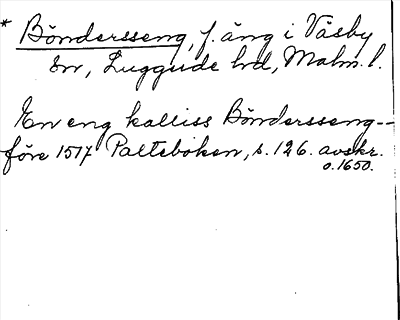 * Böndersseng, f. äng i Väsby
sn, Luggude hd, Malm. l.
En eng kalliss Böndersseng--
före 1517 Palteboken, s. 126. avskr.
o. 1650.